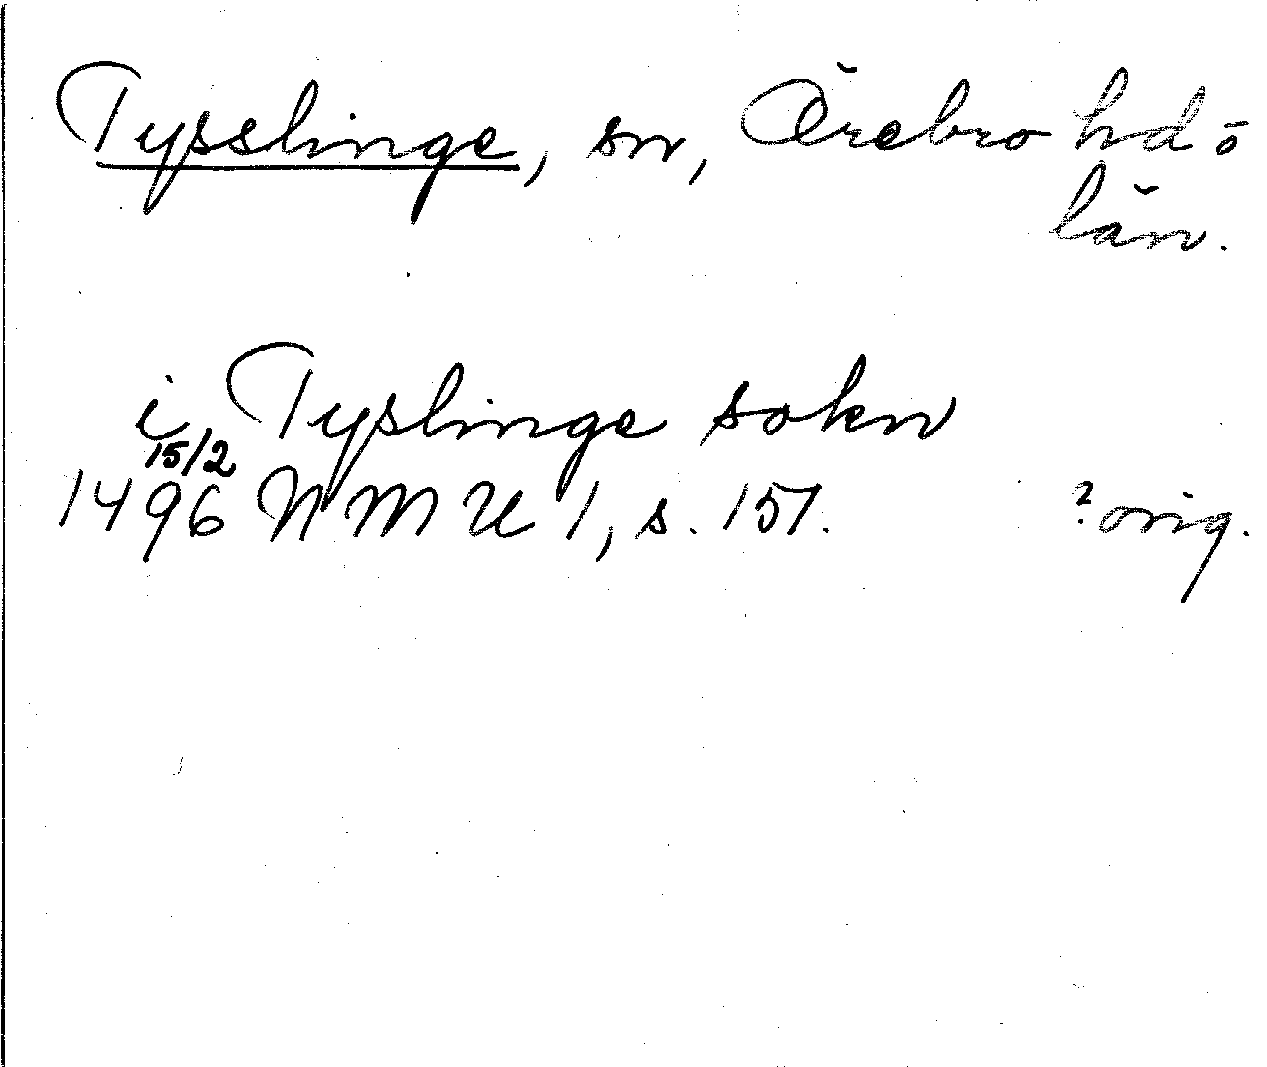 Tysslinge, sn, Örebro hd ō
län.
i Tyslinge sokn
15/2
1496 NMU 1, s. 157. ? orig.